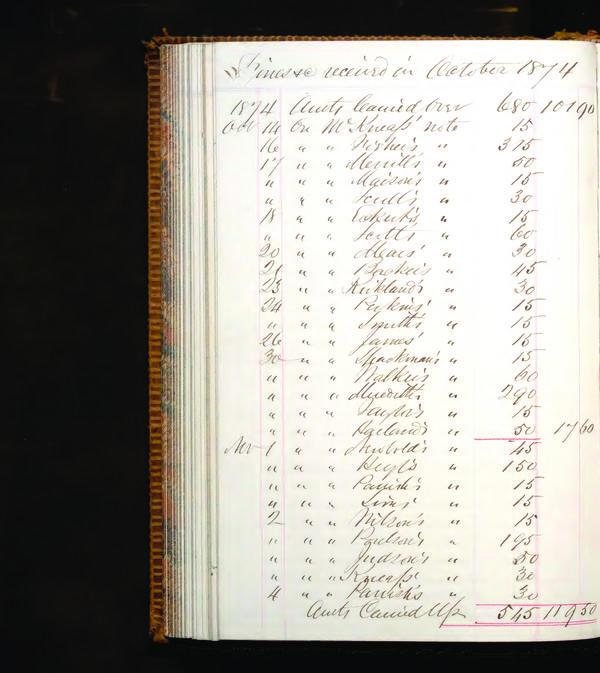 Fines &c received in October 1874
1874 Amts Carried Over 680 10190
Oct 14 On McKneass' note 15
16 " " Fisher's " 315
17 " " Merrill's " 50
" " " Maison's " 15
" " " Scull's " 30
18 " " " 15
" " " Scott's " 60
20 " " Mears' " 30
21 " " " 45
23 " " Kirkland's " 30
24 " " Perkins' " 15
" " " Smith's " 15
26 " " James' " 15
30 " " Shackman's " 15
" " " Walker's " 60
" " " Meredith's " 290
" " " Taylor's " 15
" " " Harland's " 50 1760
Nov 1 " " Newbold's " 45
" " " Heyl's " 150
" " " Parrish's " 15
" " " " 15
2 " " Wilson's " 15
" " " Poulson's " 195
" " " Judson's " 50
" " " Kneass' " 30
4 " " Parrish's " 30
Amts Carried Up 545 11950